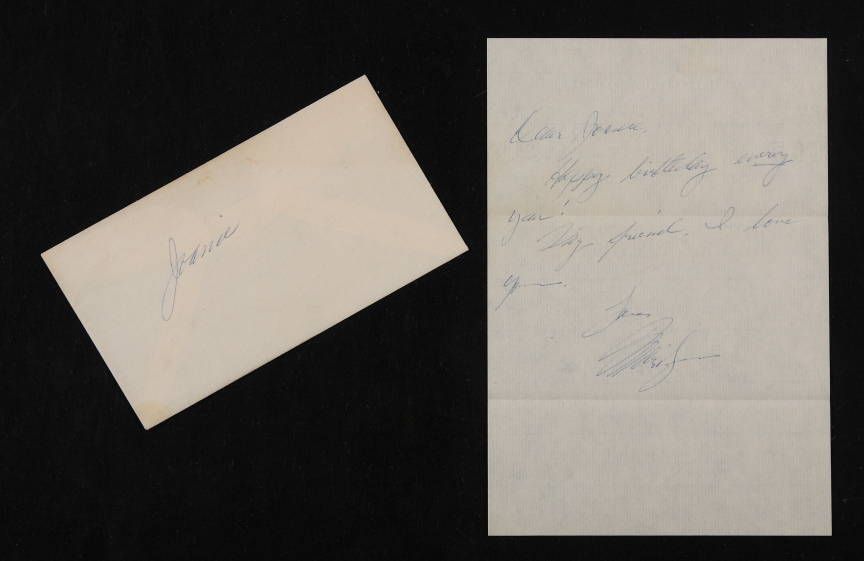 Joanie
Dear Joanie,
Happy birthday every
year!
My friend, I love
you.